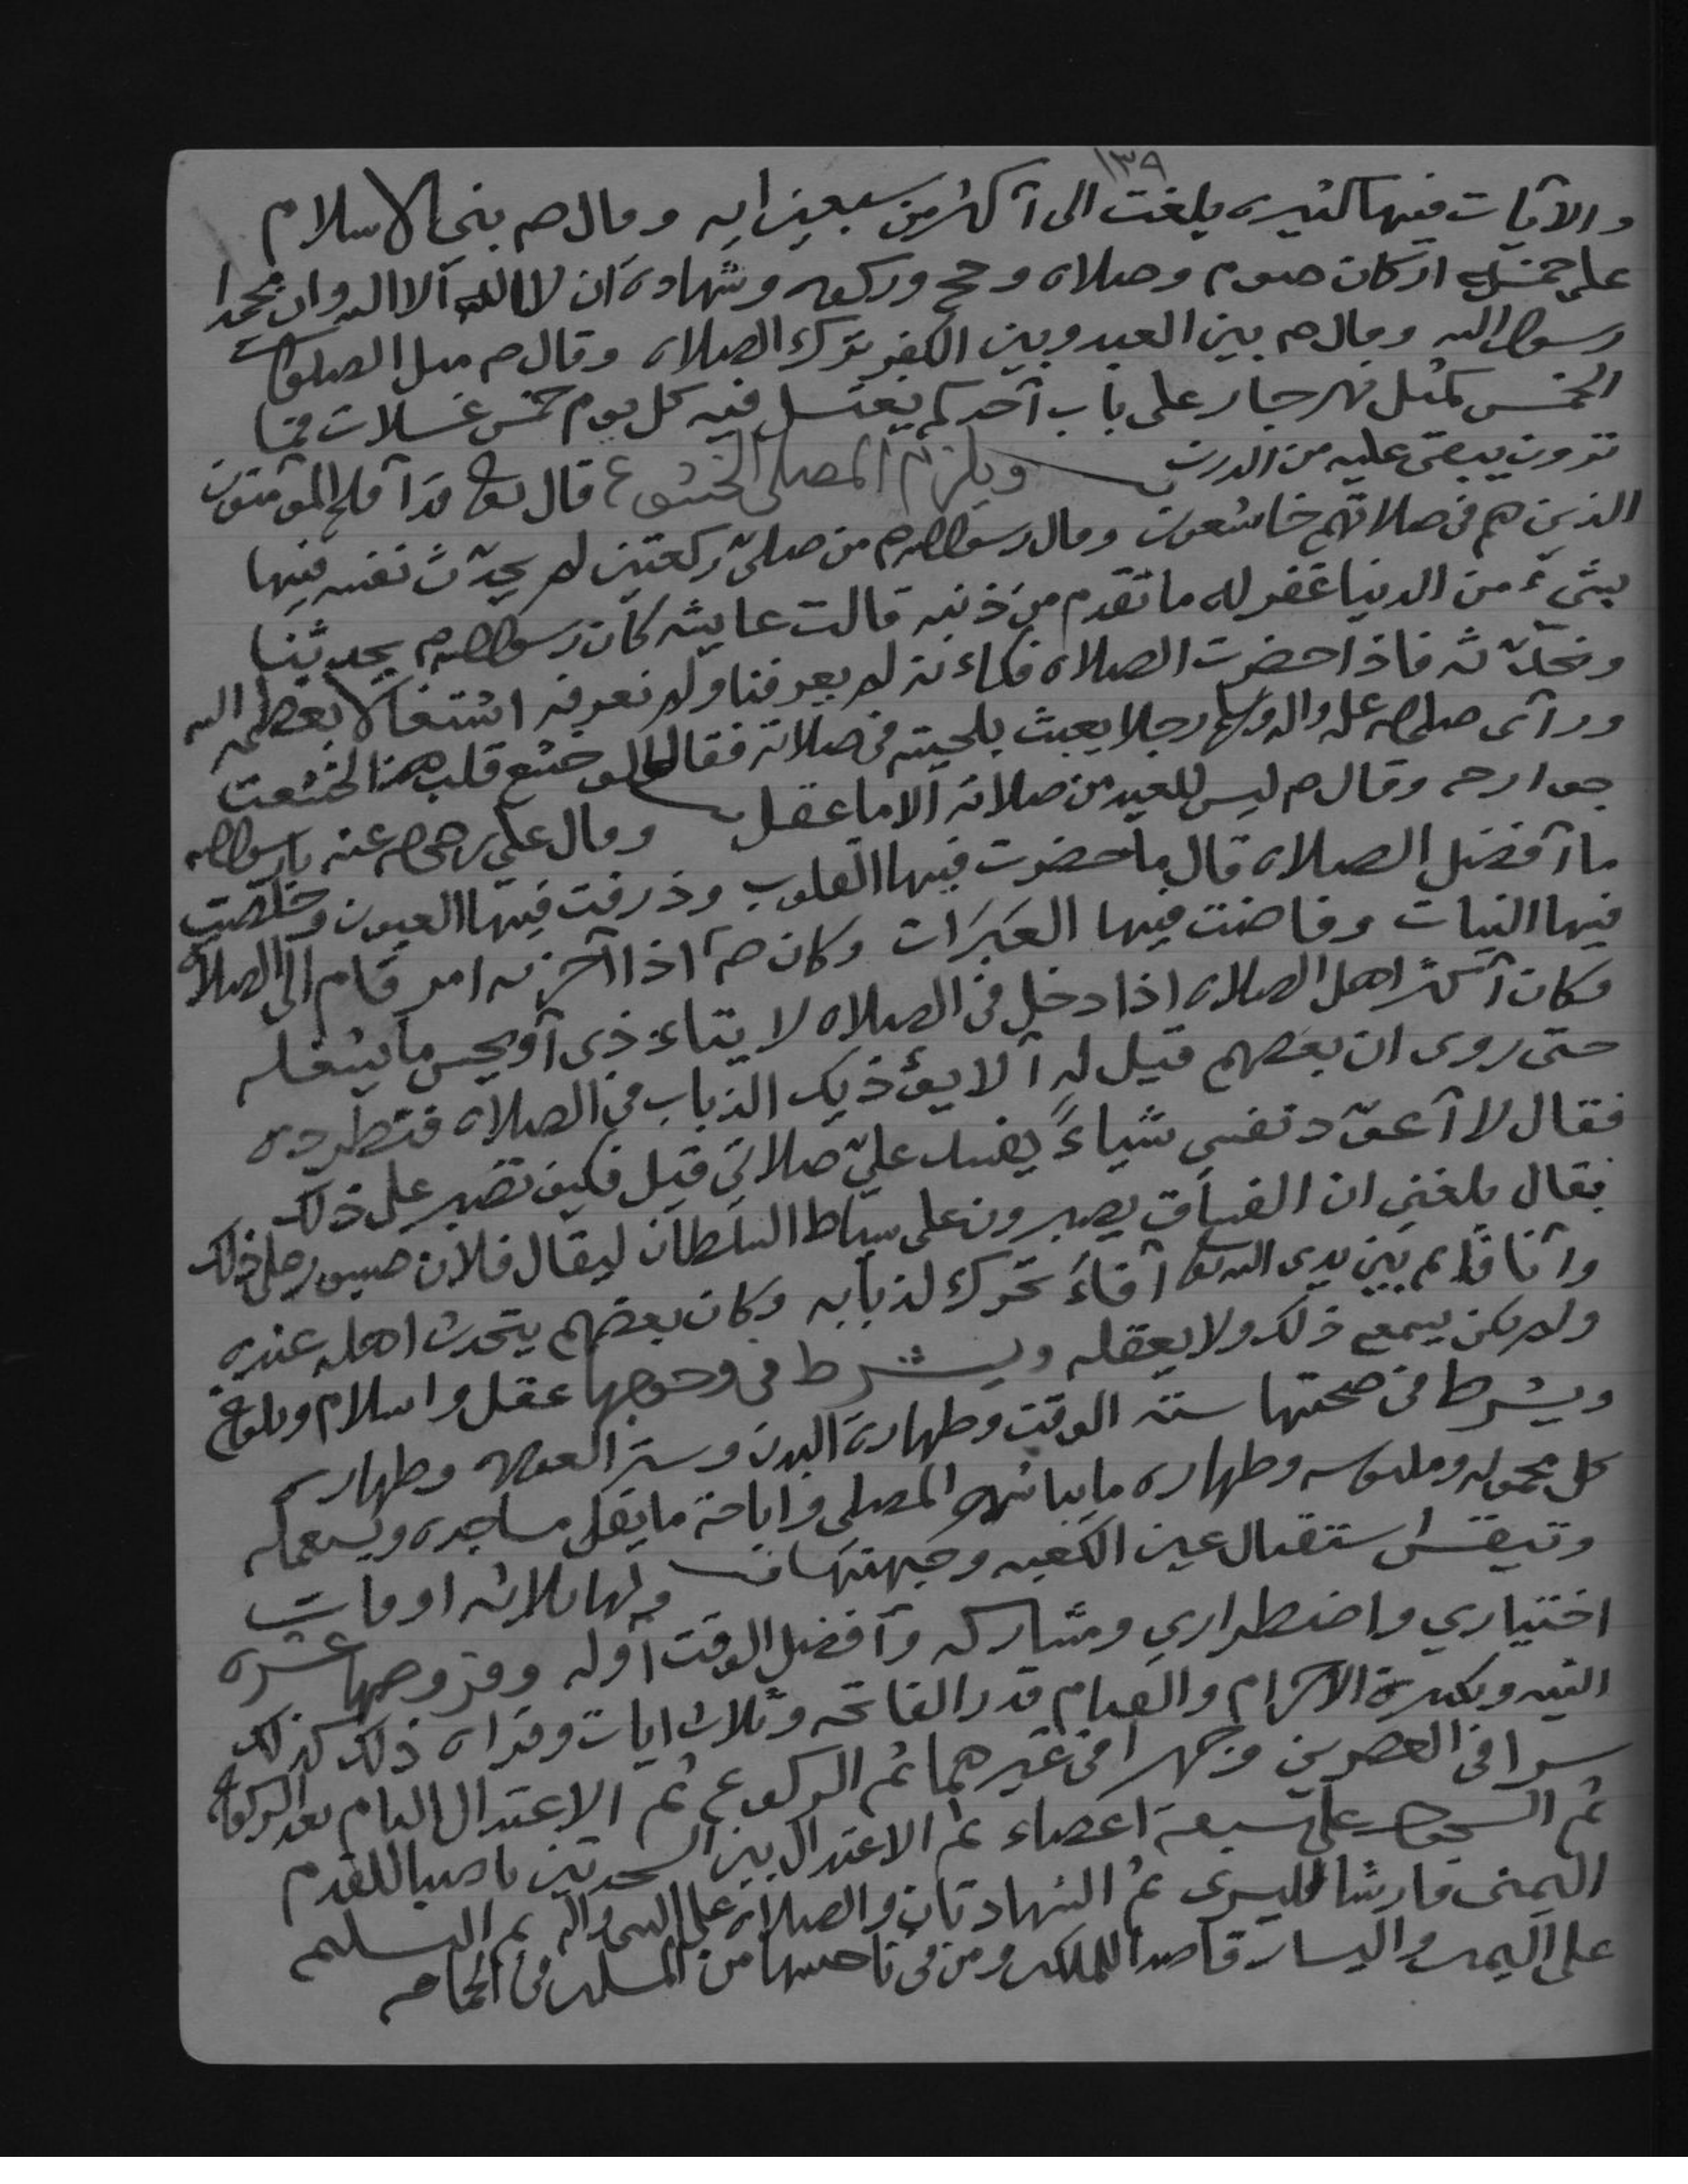 ١٣٩
والآيات فيها كثيره بلغت الى آكثر من سبعين ايه وقال صم بنى الاسلام
على خمسة اركان صوم وصلاه وحج وزكوه وشهادة ان لا اله الا الله وان محمدا
رسول الله وقال صم بين العبد وبين الكفر ترك الصلاه وقال صم مثل الصلوات
الخمس كمثل نهر جار على باب آحدكم يغتسل فيه كل يوم خمس غسلات فما
ترون يبقى عليه من الدرن ويلزم المصلى الخشوع قال تعالى قد آفلح المؤمنون
الذين هم في صلاتهم خاشعون وقال رسول الله صم من صلى ركعتين لم يحدّث نفسه فيها
بشيء من الدنيا غفر له ما تقدم من ذنبه قالت عايشه كان رسول الله صم يحدثنا
ونحدّثه فاذا حضرت الصلاه فكاءنه لم يعرفنا ولم نعرفه اشتغالا بعظمة الله
ورآى صلى الله عليه واله وسلم رجلا يعبث بلحيته في صلاته فقال لو خشع قلب هذا لخشعت
جوارحه وقال صم ليس للعبد من صلاته آلا ما عقل وقال علي رضي الله عنه يا رسول الله
ما آفضل الصلاه قال ما حضرت فيها القلوب وذرفت فيها العيون وخلصت
فيها النيات وفاضت فيها العبرات وكان صم اذا آحزنه امر قام الى الصلاه
وكان آكثر اهل الصلاه اذا دخل في الصلاه لا يتاءذى آو يحس ما يشغله
حتى روى ان بعضهم قيل له آلا يؤذيك الذباب في الصلاه فتطرده
فقال لا آعوّد نفسي شياءً يفسد عليّ صلاتي قيل فكيف تصبر على ذلك
فقال بلغني ان الفساق يصبرون على سياط السلطان ليقال فلان صبور على ذلك
وآنا قائم بين يدى الله تعالى آفاء تحرك لذبابه وكان بعضهم يتحدث اهله عنده
ولم يكن يسمع ذلك ولا يعقله ويشترط في وجوبها عقل واسلام وبلوغ
ويشترط في صحتها ستة الوقت وطهارة البدن وستر العوره وطهارة
كل محموله وملبوسه وطهاره ما يباشره المصلى واباحة ما يقل مساجده ويستعمله
وتيقن استقبال عين الكعبه وجهتها ولها ثلاثه اوقات
اختياري واضطراري ومشاركه وآفضل الوقت آوله وفروضها عشره
النيه وتكبيرة الاحرام والقيام قدر الفاتحه وثلاث ايات وقراه ذلك كذلك
سرا في العصرين وجهرا في غيرهما ثم الركوع ثم الاعتدال التام بعد الركوع
ثم السجود على سبعة اعضاء ثم الاعتدال بين السجدتين ناصبا للقدم
اليمنى فارشا لليسرى ثم الشهادتان والصلاة على النبي واله ثم التسليم
على اليمين واليسار قاصدا للملائكه ومن في ناحيتها من المسلمين في الجماعه